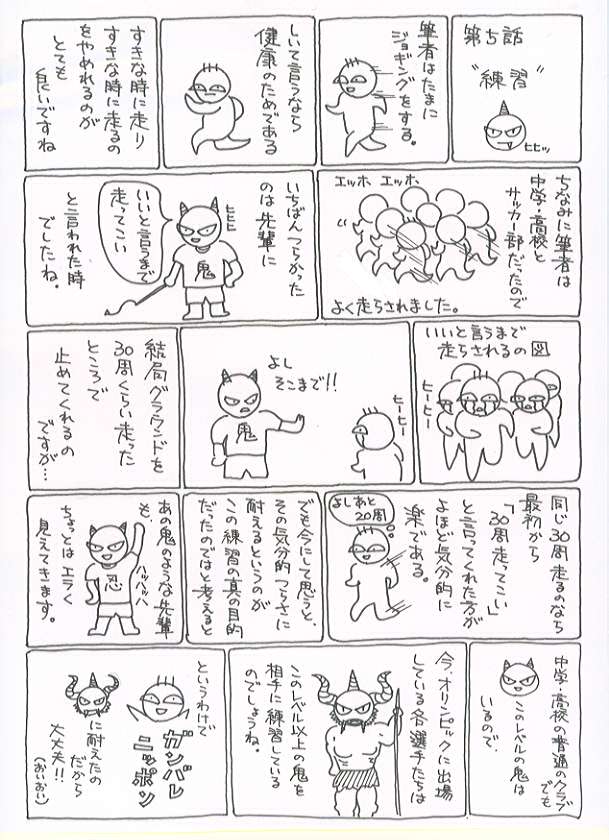 第5話
"練習"
ヒヒッ
筆者はたまに
ジョギングをする。
しいて言うなら
健康のためである
すきな時に走り
すきな時に走るの
をやめれるのが
とても
良いですね
ちなみに筆者は
中学・高校と
サッカー部だったので
エッホ エッホ
よく走らされました。
いちばんつらかった
のは先輩に
ヒヒヒ
鬼
いいと言うまで
走ってこい
と言われた時
でしたね。
いいと言うまで
走らされるの図
ヒーヒー
ヒーヒー
よし
そこまで!!
鬼
ヒーヒー
結局グラウンドを
30周くらい走った
ところで
止めてくれるの
ですが…
同じ30周走るのなら
最初から
「30周走ってこい」
と言ってくれた方が
よほど気分的に
楽である。
よしあと
20周
でも今にして思うと、
その気分的つらさに
耐えるというのが
この練習の真の目的
だったのではと考えると
あの鬼のような先輩
も、
ハッハッハ
忍
ちょっとはエラく
見えてきます。
中学、高校の普通のクラブ
でも
このレベルの鬼は
いるので、
今、オリンピックに出場
している各選手たちは
このレベル以上の鬼を
相手に練習している
のでしょうね。
というわけで
ガンバレ
ニッポン
に耐えたの
だから
大丈夫!!
(おいおい)